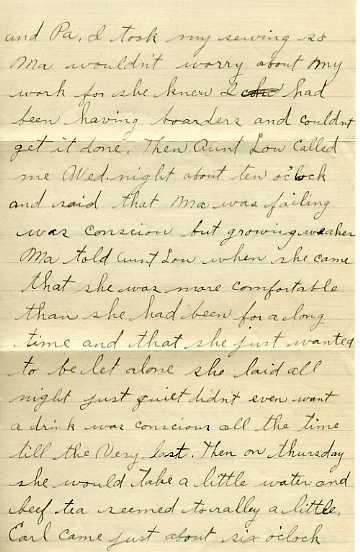 and Pa. I took my sewing so
Ma wouldn't worry about my
work for she knew I had
been having boarders and couldnt
get it done. Then Aunt Lou called
me Wed. night about ten o'clock
and said that Ma was failing
was conscion but growing weaker
Ma told Aunt Lou when she came
that she was more comfortable
than she had been for a long
time and that she just wanted
to be let alone she laid all
night just quiet didnt even want
a drink was conscious all the time
till the very last. Then on thursday
she would take a little water and
beef tea seemed to rally a little.
Earl came just about six o'clock